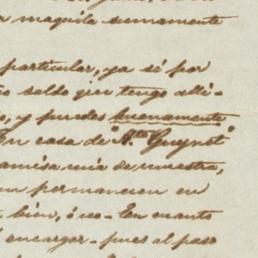 a maquila sumamente
particular, ya sé por
saldo que tengo alli-
, y puedes buenamente
En casa de "
camisa mia de muestra,
permanecen en
bien, ó no- En cuanto
encargar- pues al paso